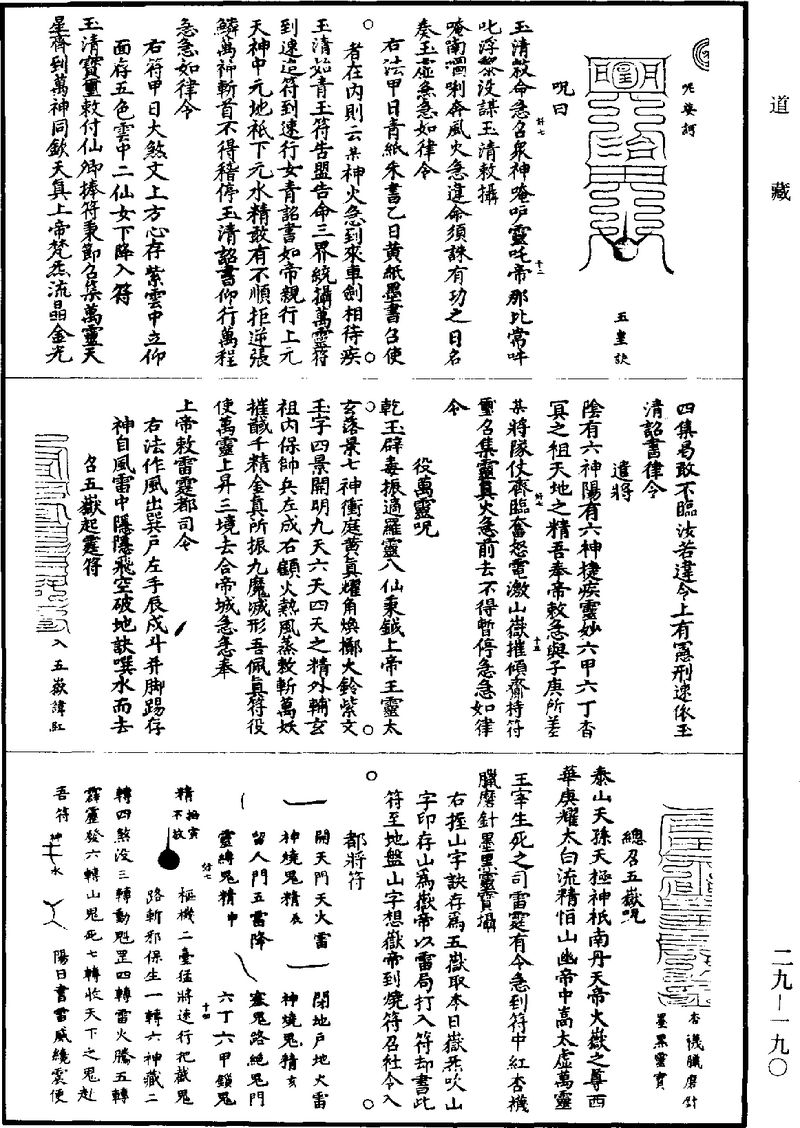 道藏
呪娑訶
五皇訣
呪曰
玉清敕命急召眾神唵吽靈吒帝那比常吽
叱浮黎沒謀玉清敕攝
唵南嗢唎奔風火急違命須誅有功之日名
奏玉虛急急如律令
右法甲日青紙朱書乙日黃紙墨書召使
者在內則云某神火急到來車劍相待疾
玉清始青玉符告盟告命三界統攝萬靈符
到速追符到速行女青詔書如帝親行上元
天神中元地祇下元水精敢有不順拒逆張
鱗萬神斬首不得稽停玉清詔書仰行萬程
急急如律令
右符甲日大煞文上方心存紫雲中立仰
面存五色雲中二仙女下降入符
玉清寶璽敕付仙卿捧符秉節召集萬靈天
星齊到萬神同欽天真上帝梵炁流晶金光
四集曷敢不臨汝若違令上有憲刑速依玉
清詔書律令
遣將
陰有六神陽有六神捷疾靈妙六甲六丁杳
冥之祖天地之精吾奉帝敕急與子庚所差
某將隊仗齊臨奮怒電激山嶽摧傾齋持符
璽召集靈真火急前去不得暫停急急如律
令
役萬靈呪
乾玉辟毒振適羅靈八仙秉鉞上帝王靈太
玄落景七神衝庭黃真耀角煥擲火鈴紫文
玉字四景開明九天六天四天之精外輔玄
祖內保帥兵左成右顧火熱風蒸敕斬萬妖
摧馘千精金真所振九魔滅形吾佩真符役
使萬靈上昇三境去合帝城急急奉
上帝敕雷霆都司令
右法作風出巽戶左手辰戌斗并脚踢存
神自風雷中隱隱飛空破地訣噀水而去
召五嶽起霆符
入五嶽諱紅
杏機臘磨針
墨黑靈寶
總召五嶽呪
泰山天孫天極神祇南丹天帝火嶽之尊西
華庚耀太白流精怕山幽帝中高太虛萬靈
王宰生死之司雷霆有令急到符中紅杏機
臘磨針墨黑靈寶攝
右握山字訣存為五嶽取本日嶽炁吹山
字印存山為嶽帝以雷局打入符却書此
符至地盤山字想嶽帝到燒符召社令入
都將符
開天門天火雷
神燒鬼精辰
閉地戶地火雷
神燒鬼精亥
留人門五雷降
靈縛鬼精申
塞鬼路絕鬼門
六丁六甲鎖鬼
精
樞機二臺猛將速行祀截鬼
路斬邪保生一轉六神藏二
轉四煞沒三轉動魁罡四轉雷火騰五轉
霹靂發六轉山鬼死七轉收天下之鬼赴
吾符
神水
陽日書雷威繞雲使
二九―一九〇